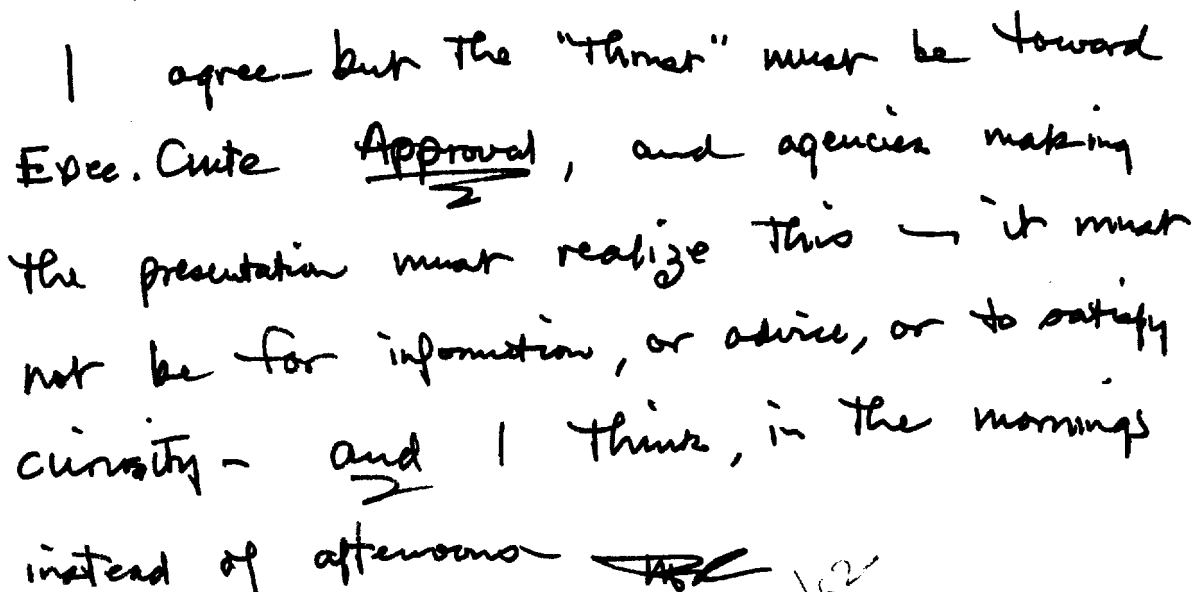 I agree — but the "Thrust" must be toward
Exec. Cmte Approval, and agencies making
the presentation must realize this — it must
not be for information, or advice, or to satisfy
curiosity - and I think, in the mornings
instead of afternoons